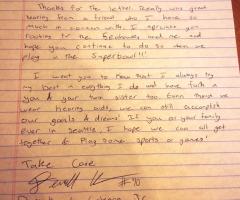 Thanks for the letter. Really was great
hearing from a friend who I have so
much in common with. I apriciate you
Routing for the Seahawks and me and
hope you continue to do so when we
play in the Superbowl!!
I want you to know that I always try
my best in everything I do and have faith in
you & your twin sister too. Even though we
wear hearing aids, we can still accomplish
our goals & dreams! If you or your family
ever in Seattle, I hope we can all get
together & Play some sports or games!
Take Care
#40